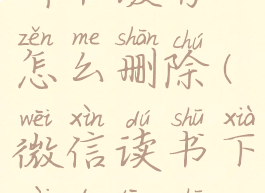 zěn me shān chú
怎么删除(
wēi xìn dú shū xià
微信读书下